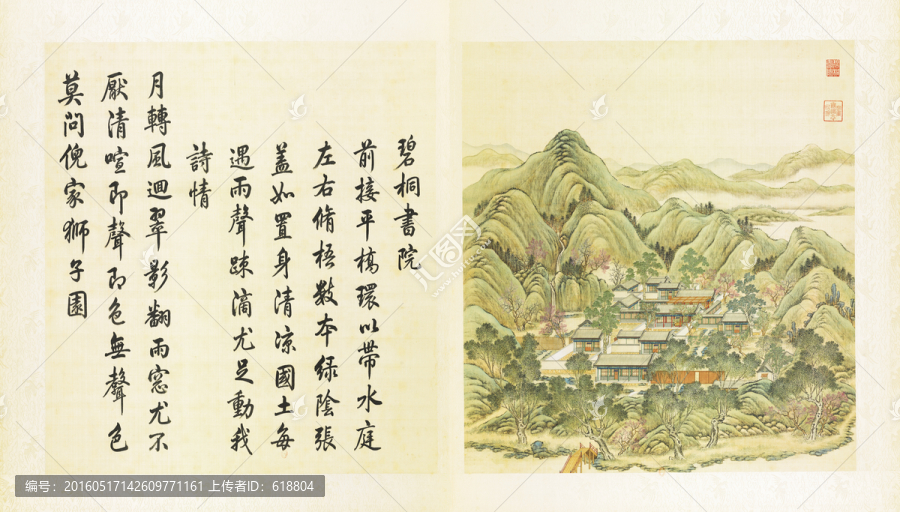 碧桐書院
前接平橋環以帶水庭
左右脩梧數本綠陰張
蓋如置身清涼國土每
遇雨聲踈滴尤足動我
詩情
月轉風迴翠影翻雨窓尤不
厭清喧即聲即色無聲色
莫問倪家獅子園
编号：20160517142609771161 上传者ID：618804